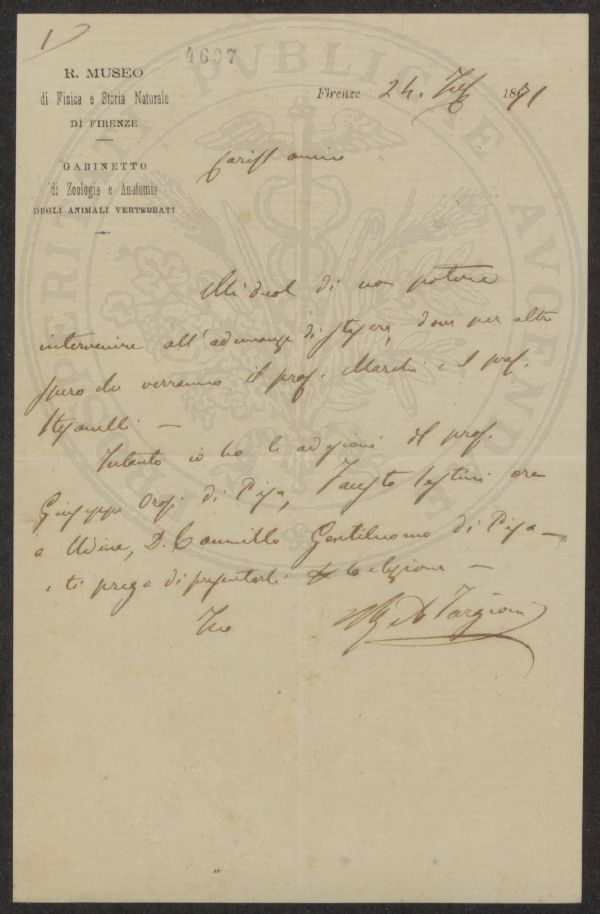 1
4607
R. MUSEO
di Fisica e Storia Naturale
DI FIRENZE
GABINETTO
di Zoologia e Anatomia
DEGLI ANIMALI VERTEBRATI
Firenze 24. 1871
Cariss amico
Mi duol di non potere
intervenire all'adunanza di stasera, dove per altro
spero che verranno il prof. Marchi e il prof.
Stefanelli —
Intanto io ho le adesioni del prof.
Giuseppe Orosi di Pisa, Fausto Sestini ora
a Udine, D. Cammillo Gentiluomo di Pisa —
e ti prego di presentarli —
Tuo Targioni
PROSPERITATI PUBLICAE AUGENDAE